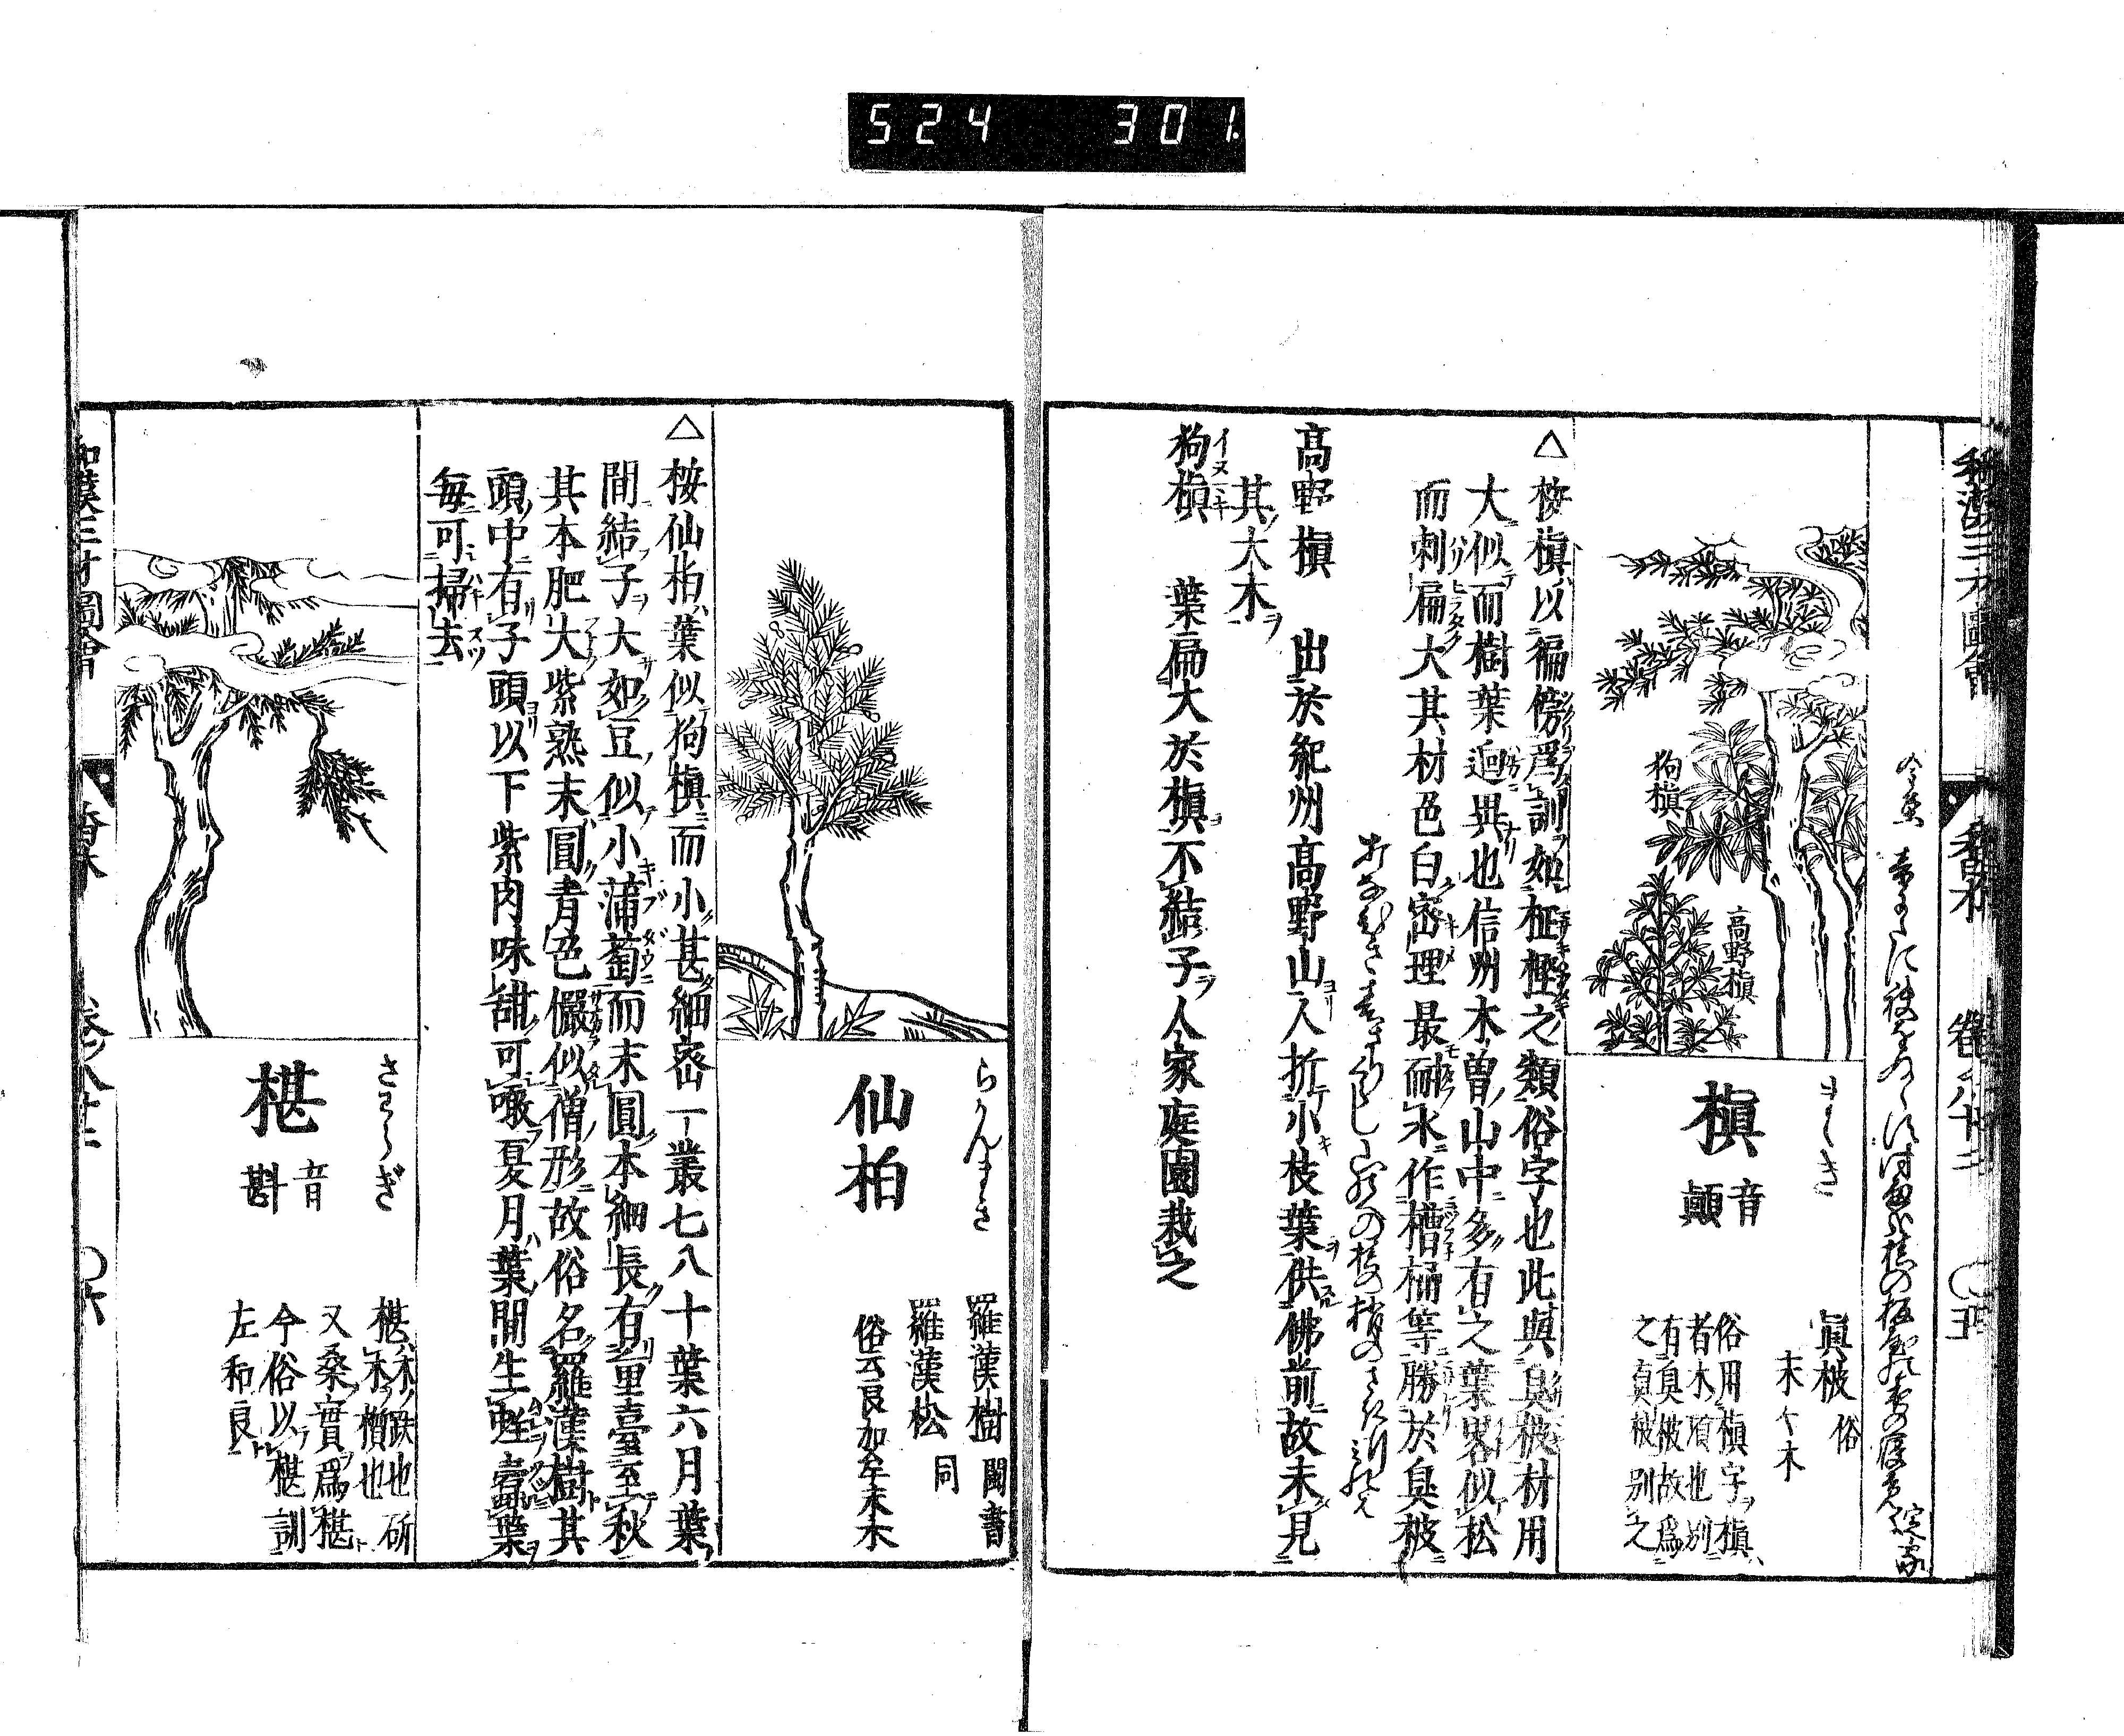 524 301.
和漢三才圖會
香木
卷八十二
まき
槇
音
顚
眞柀 俗
末木
俗用槇字槇
者木頂也別
有臭柀故爲
之眞柀別之
狗槇
高野槇
△按槇以徧傍爲訓如柾樫之類俗字也此與臭柀材用
大似而樹葉迥異也信州木曽山中多有之葉畧似松
而刺扁大其材色白宻理最耐水作槽桶等勝於臭柀
高野槇 出於紀州高野山人折小枝葉供佛前故未見
其大木ヲ
狗槇 葉扁大於槇不結子人家庭園栽之
イヌマキ
らかんまき
仙柏
羅漢樹 閩書
羅漢松 同
俗云良加牟末木
△按仙柏葉似狗槇而小甚細宻一叢七八十葉六月葉
間結子大如豆似小蒲萄而末圓本細長有里臺至秋
其本肥大紫熟末圓青色儼似僧形故俗名羅漢樹其
頭中有子頭以下紫肉味甜可噉夏月葉間生蛭蠧葉
每可掃去
さわらぎ
椹
音
斟
椹木跌也斫
木櫍也
又桑實爲椹
今俗以椹訓
左和良
和漢三才圖會
香木
卷八十二
〇六